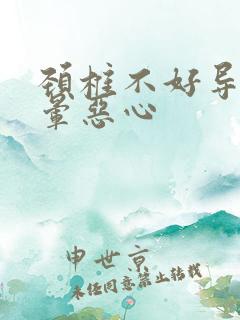 颈椎不好导
晕恶心
申世京
未经同意禁止转载